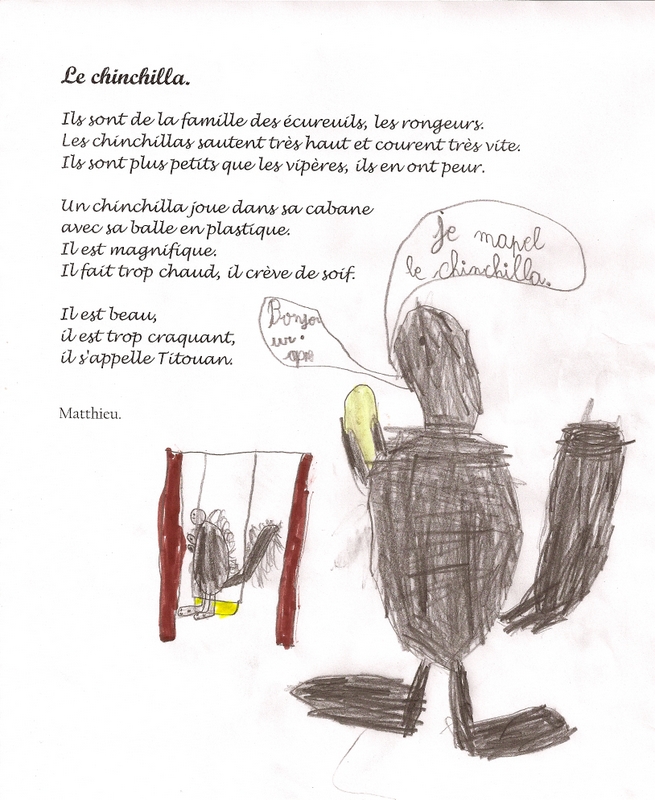 Le chinchilla.
Ils sont de la famille des écureuils, les rongeurs.
Les chinchillas sautent très haut et courent très vite.
Ils sont plus petits que les vipères, ils en ont peur.
Un chinchilla joue dans sa cabane
avec sa balle en plastique.
Il est magnifique.
Il fait trop chaud, il crève de soif.
Il est beau,
il est trop craquant,
il s'appelle Titouan.
Matthieu.
je mapel
le chinchilla.
Bonjo
ur.